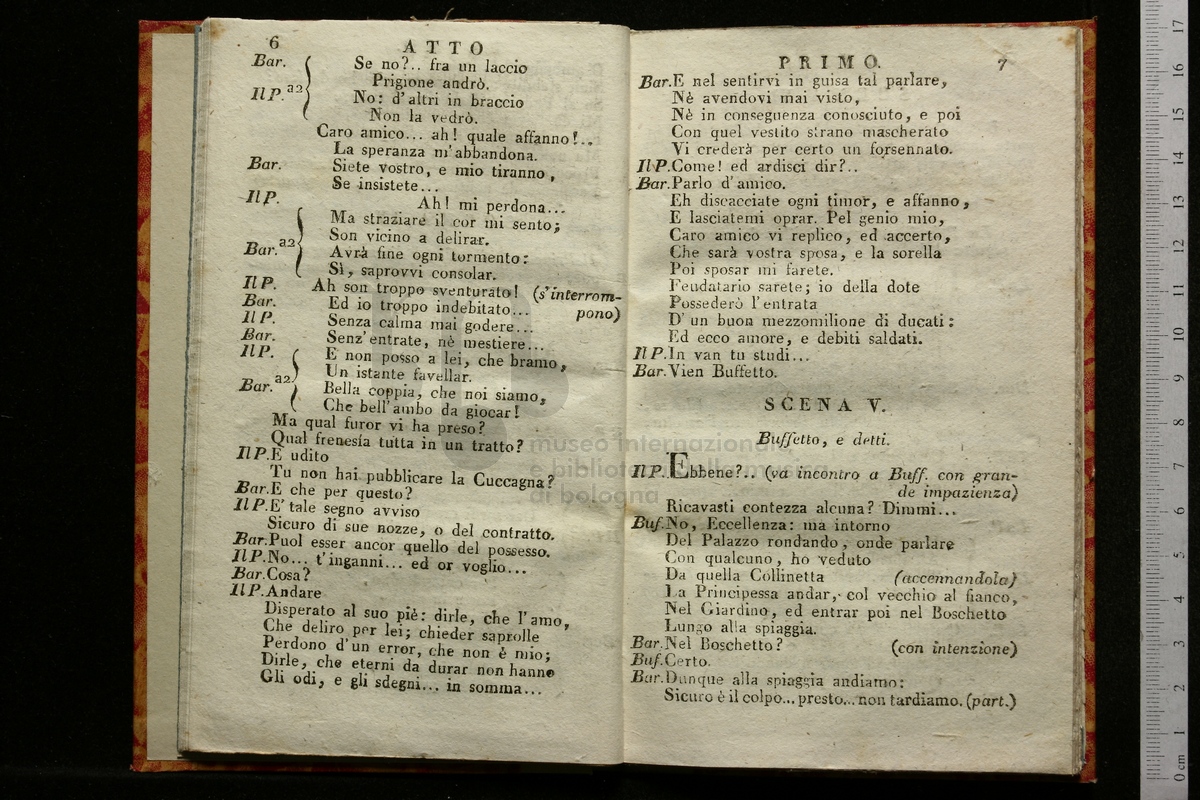 6
ATTO
Bar. Se no?.. fra un laccio
Prigione andrò.
Il P. a2 No: d'altri in braccio
Non la vedrò.
Caro amico... ah! quale affanno!..
La speranza m'abbandona.
Bar. Siete vostro, e mio tiranno,
Se insistete...
Il P. Ah! mi perdona...
Ma straziare il cor mi sento;
Son vicino a delirar.
Bar. a2 Avrà fine ogni tormento:
Sì, saprovvi consolar.
Il P. Ah son troppo sventurato! (s'interrom-
Bar. Ed io troppo indebitato... pono)
Il P. Senza calma mai godere...
Bar. Senz'entrate, nè mestiere...
Il P. E non posso a lei, che bramo,
Un istante favellar.
Bar. a2 Bella coppia, che noi siamo,
Che bell'ambo da giocar!
Ma qual furor vi ha preso?
Qual frenesía tutta in un tratto?
Il P. E udito
Tu non hai pubblicare la Cuccagna?
Bar. E che per questo?
Il P. E' tale segno avviso
Sicuro di sue nozze, o del contratto.
Bar. Puol esser ancor quello del possesso.
Il P. No... t'inganni... ed or voglio...
Bar. Cosa?
Il P. Andare
Disperato al suo piè: dirle, che l'amo,
Che deliro per lei; chieder saprolle
Perdono d'un error, che non è mio;
Dirle, che eterni da durar non hanno
Gli odi, e gli sdegni... in somma...
PRIMO. 7
Bar. E nel sentirvi in guisa tal parlare,
Nè avendovi mai visto,
Nè in conseguenza conosciuto, e poi
Con quel vestito strano mascherato
Vi crederà per certo un forsennato.
Il P. Come! ed ardisci dir?..
Bar. Parlo d'amico.
Eh discacciate ogni timor, e affanno,
E lasciatemi oprar. Pel genio mio,
Caro amico vi replico, ed accerto,
Che sarà vostra sposa, e la sorella
Poi sposar mi farete.
Feudatario sarete; io della dote
Possederò l'entrata
D'un buon mezzomilione di ducati:
Ed ecco amore, e debiti saldati.
Il P. In van tu studi...
Bar. Vien Buffetto.
SCENA V.
Buffetto, e detti.
Il P. Ebbene?.. (va incontro a Buff. con gran-
de impazienza)
Ricavasti contezza alcuna? Dimmi...
Buf. No, Eccellenza: ma intorno
Del Palazzo rondando, onde parlare
Con qualcuno, ho veduto
Da quella Collinetta (accennandola)
La Principessa andar, col vecchio al fianco,
Nel Giardino, ed entrar poi nel Boschetto
Lungo alla spiaggia.
Bar. Nel Boschetto? (con intenzione)
Buf. Certo.
Bar. Dunque alla spiaggia andiamo:
Sicuro è il colpo... presto... non tardiamo. (part.)
museo internazionale
e biblioteca della musica
di bologna
0 cm 1 2 3 4 5 6 7 8 9 10 11 12 13 14 15 16 17